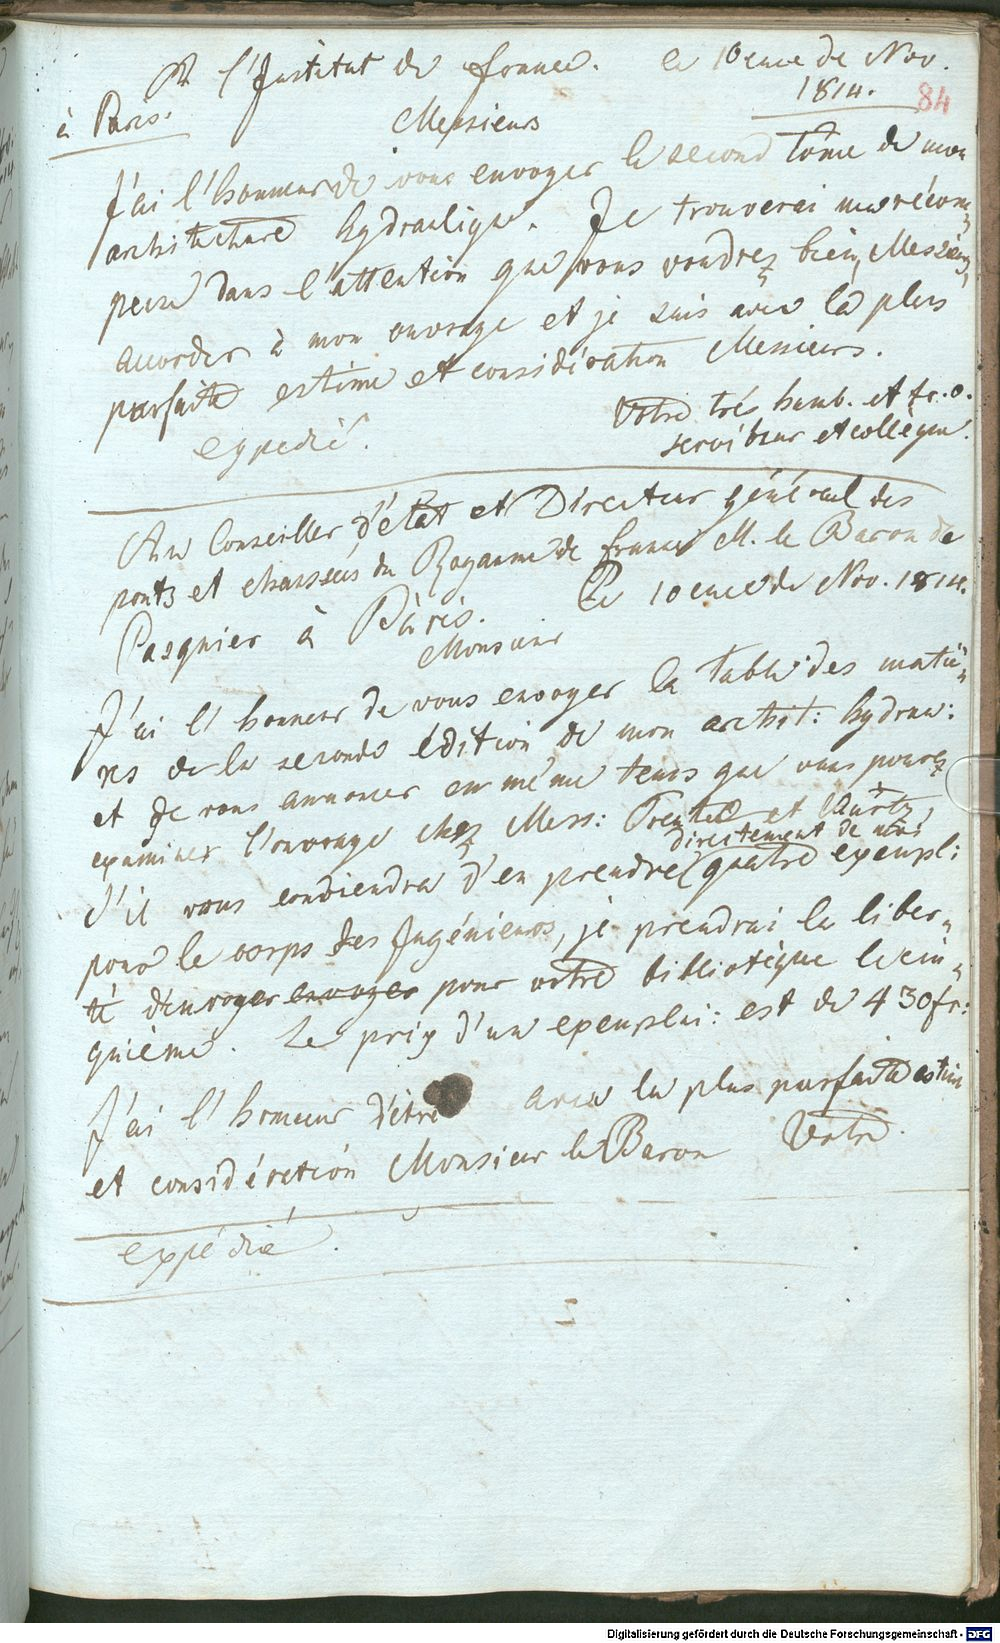 A l'Institut de france. le 10eme de Nov.
à Paris. 1814. 84
Messieurs
J'ai l'honneur de vous envoyer le second tôme de mon
architecture hydraulique. Je trouverai ma récom=
pense dans l'attention que vous voudrez bien, Messieurs,
accorder à mon ouvrage et je suis avec la plus
parfaite estime et considération Messieurs.
Votre très humb. et tr. o.
expedié. serviteur et collègue.
Au Conseiller d'état et Directeur général des
ponts et chaussées du Royaume de france M. le Baron de
Pasquier à Pàris. le 10eme de Nov. 1814.
Monsieur
J'ai l'honneur de vous envoyer la table des matiè=
res de la seconde édition de mon archit: hydrau:
et de vous annoncer en même tems que vous pourez
examiner l'ouvrage chez Mess: Treuttel et Würtz,
directement de nous
S'il vous conviendra d'en prendre quatre exempl:
pour le corps des Ingénieurs, je prendrai la liber=
té d'envoyer envoyer pour votre bibliotèque le cin=
quième. Le prix d'un exemplai: est de 430 fr:
J'ai l'honneur d'être avec la plus parfaite estim
et considération Monsieur le Baron Votre.
expédié.
Digitalisierung gefördert durch die Deutsche Forschungsgemeinschaft - DFG